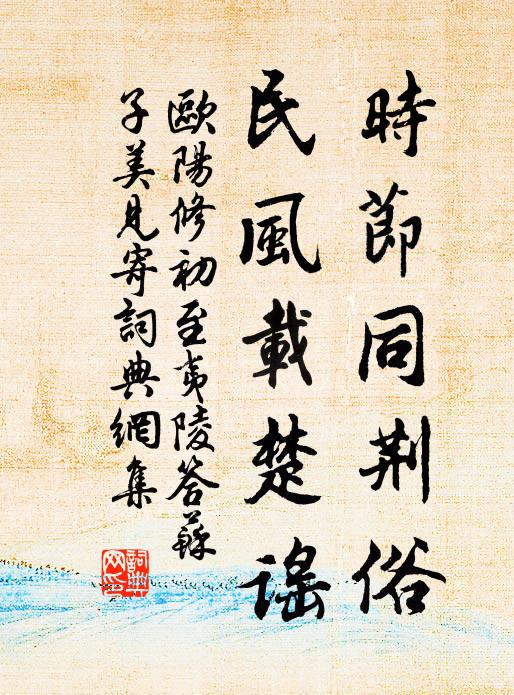 時節同荆俗
民風載楚謠
歐陽修初至夷陵答蘇
子美見寄詞典網集